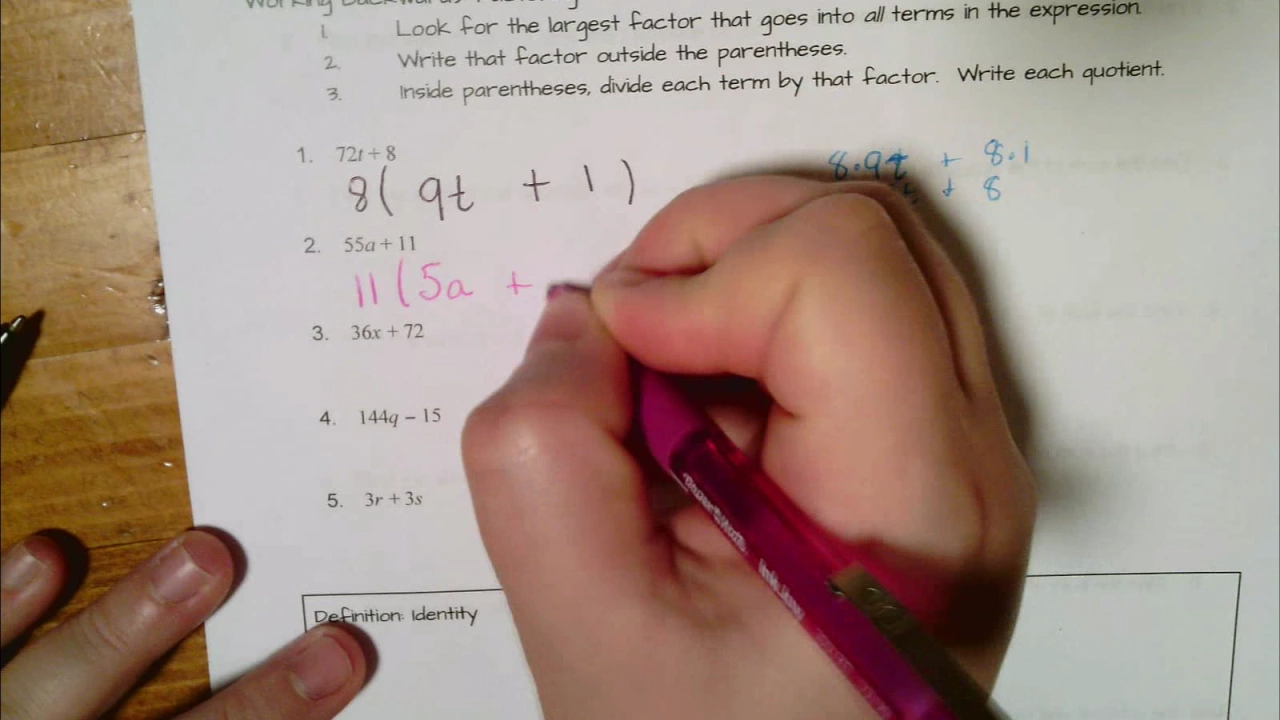 Working Backwards
1. Look for the largest factor that goes into all terms in the expression
2. Write that factor outside the parentheses.
3. Inside parentheses, divide each term by that factor. Write each quotient.
1. 72t + 8
8( 9t + 1 )
8.9t + 8.1
+ 8
2. 55a + 11
11(5a +
3. 36x + 72
4. 144q − 15
5. 3r + 3s
Definition: Identity
PaperMate
InkJoy